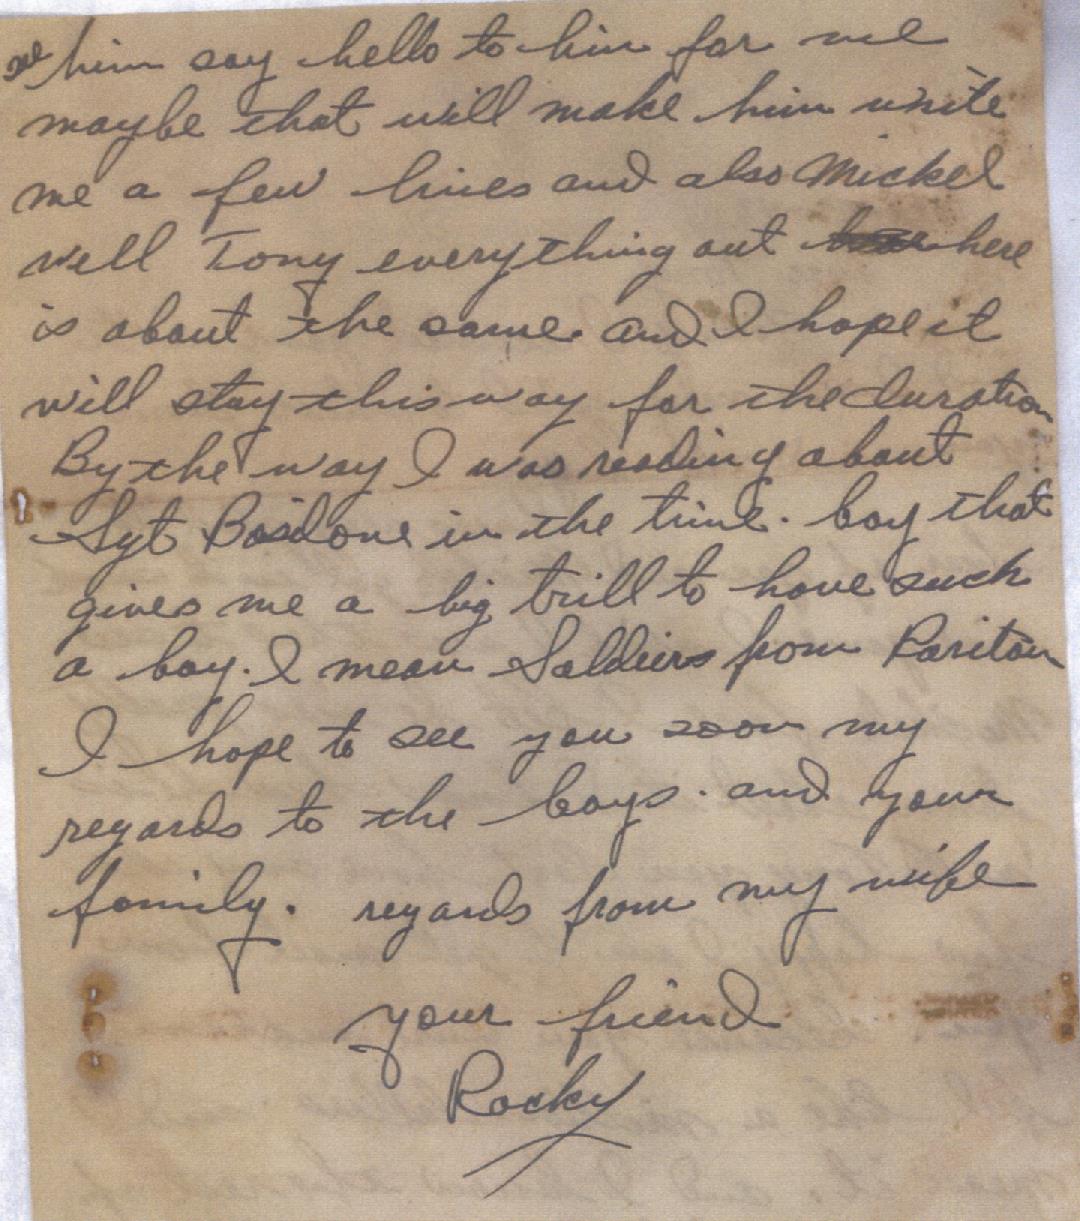 see him say hello to him for me
maybe that will make him write
me a few lines and also Mickel
well Tony everything out here
is about the same. and I hope it
will stay this way for the duration
By the way I was reading about
Sgt Basilone in the time. boy that
gives me a big trill to have such
a boy. I mean Soldiers from Raritan
I hope to see you soon my
regards to the boys. and your
family. regards from my wife
your friend
Rocky